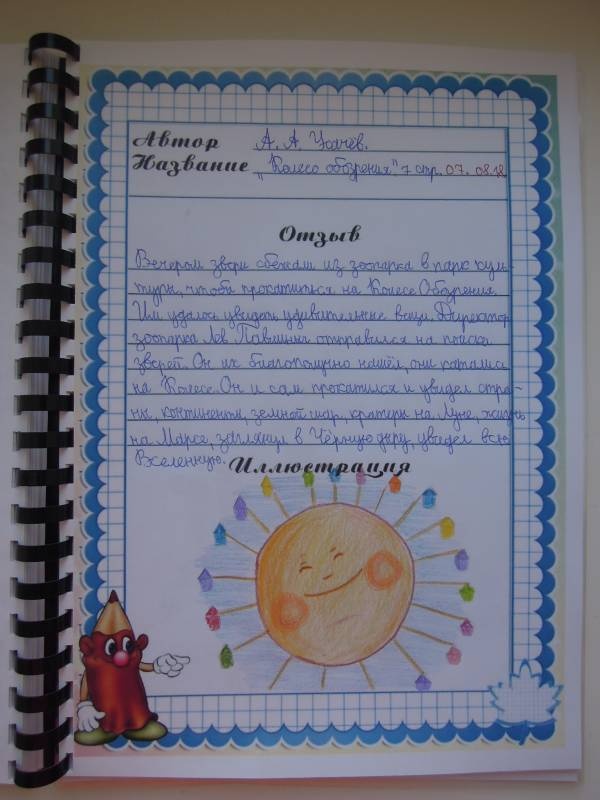 Автор А. А. Усачёв.
Название "Колесо обозрения" 7 стр. 07. 08.18
Отзыв
Вечером звери сбежали из зоопарка в парк куль-
туры, чтобы прокатиться на Колесе Обозрения.
Им удалось увидеть удивительные вещи. Директор
зоопарка Лев Павлиныч отправился на поиски
зверей. Он их благополучно нашёл, они катались
на Колесе. Он и сам прокатился и увидел стра-
ны, континенты, земной шар, кратеры на Луне, жизнь
на Марсе, заглянул в Чёрную дыру, увидел всю
Вселенную.
Иллюстрация